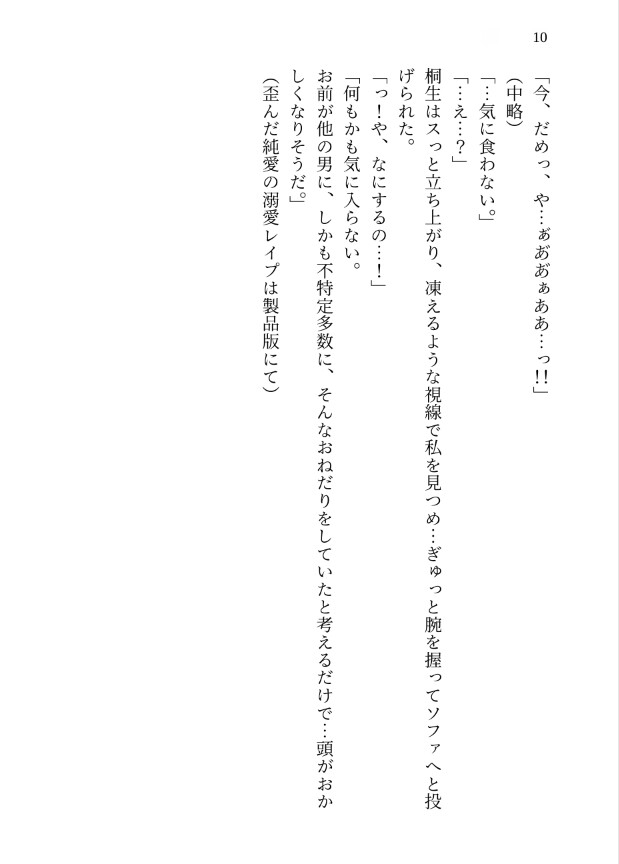 10
「今、だめっ、や…ぁ゙あ゙あ゙ぁああ…っ!!」
（中略）
「…気に食わない。」
「…え…？」
桐生はスっと立ち上がり、凍えるような視線で私を見つめ…ぎゅっと腕を握ってソファへと投
げられた。
「っ！や、なにするの…！」
「何もかも気に入らない。
お前が他の男に、しかも不特定多数に、そんなおねだりをしていたと考えるだけで…頭がおか
しくなりそうだ。」
（歪んだ純愛の溺愛レイプは製品版にて）